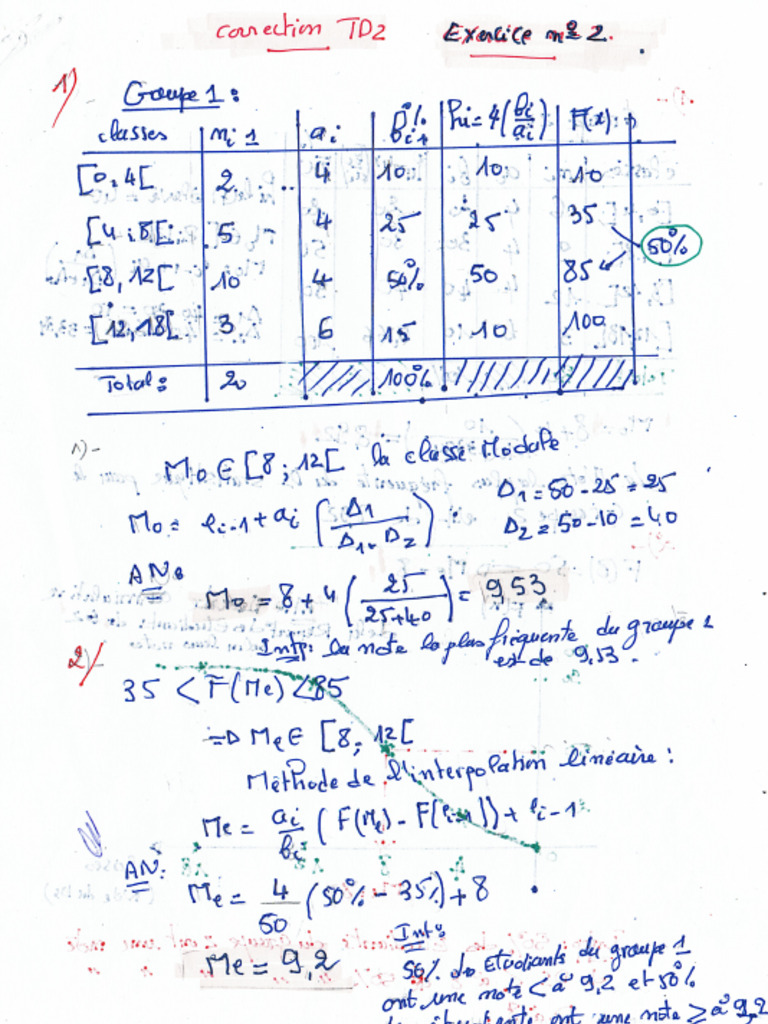 correction TD2 Exercice n°2.
1)
Groupe 1 :
classes ni 1 ai fi% hi=4(fi/ai) F(x)
[0,4[ 2 4 10 10 10
[4,8[ 5 4 25 25 35
50%
[8,12[ 10 4 50% 50 85
[12,18[ 3 6 15 10 100
Total: 20 100%
1)-
Mo ∈ [8; 12[ la classe Modale
Δ1 = 50-25 = 25
Mo = li-1 + ai (Δ1/Δ1+Δ2)
Δ2 = 50-10 = 40
AN:
Mo = 8 + 4 (25/25+40) = 9,53
Intp: la note la plus fréquente du groupe 1
est de 9,53.
2)
35 < F(Me) < 85
=> Me ∈ [8, 12[
Méthode de l'interpolation linéaire :
Me = ai/fi (F(Me) - F(li-1)) + li-1
AN:
Me = 4/50 (50% - 35%) + 8
Int:
Me = 9,2
50% des Etudiants du groupe 1
ont une note < à 9,2 et 50%
ont une note ≥ à 9,2